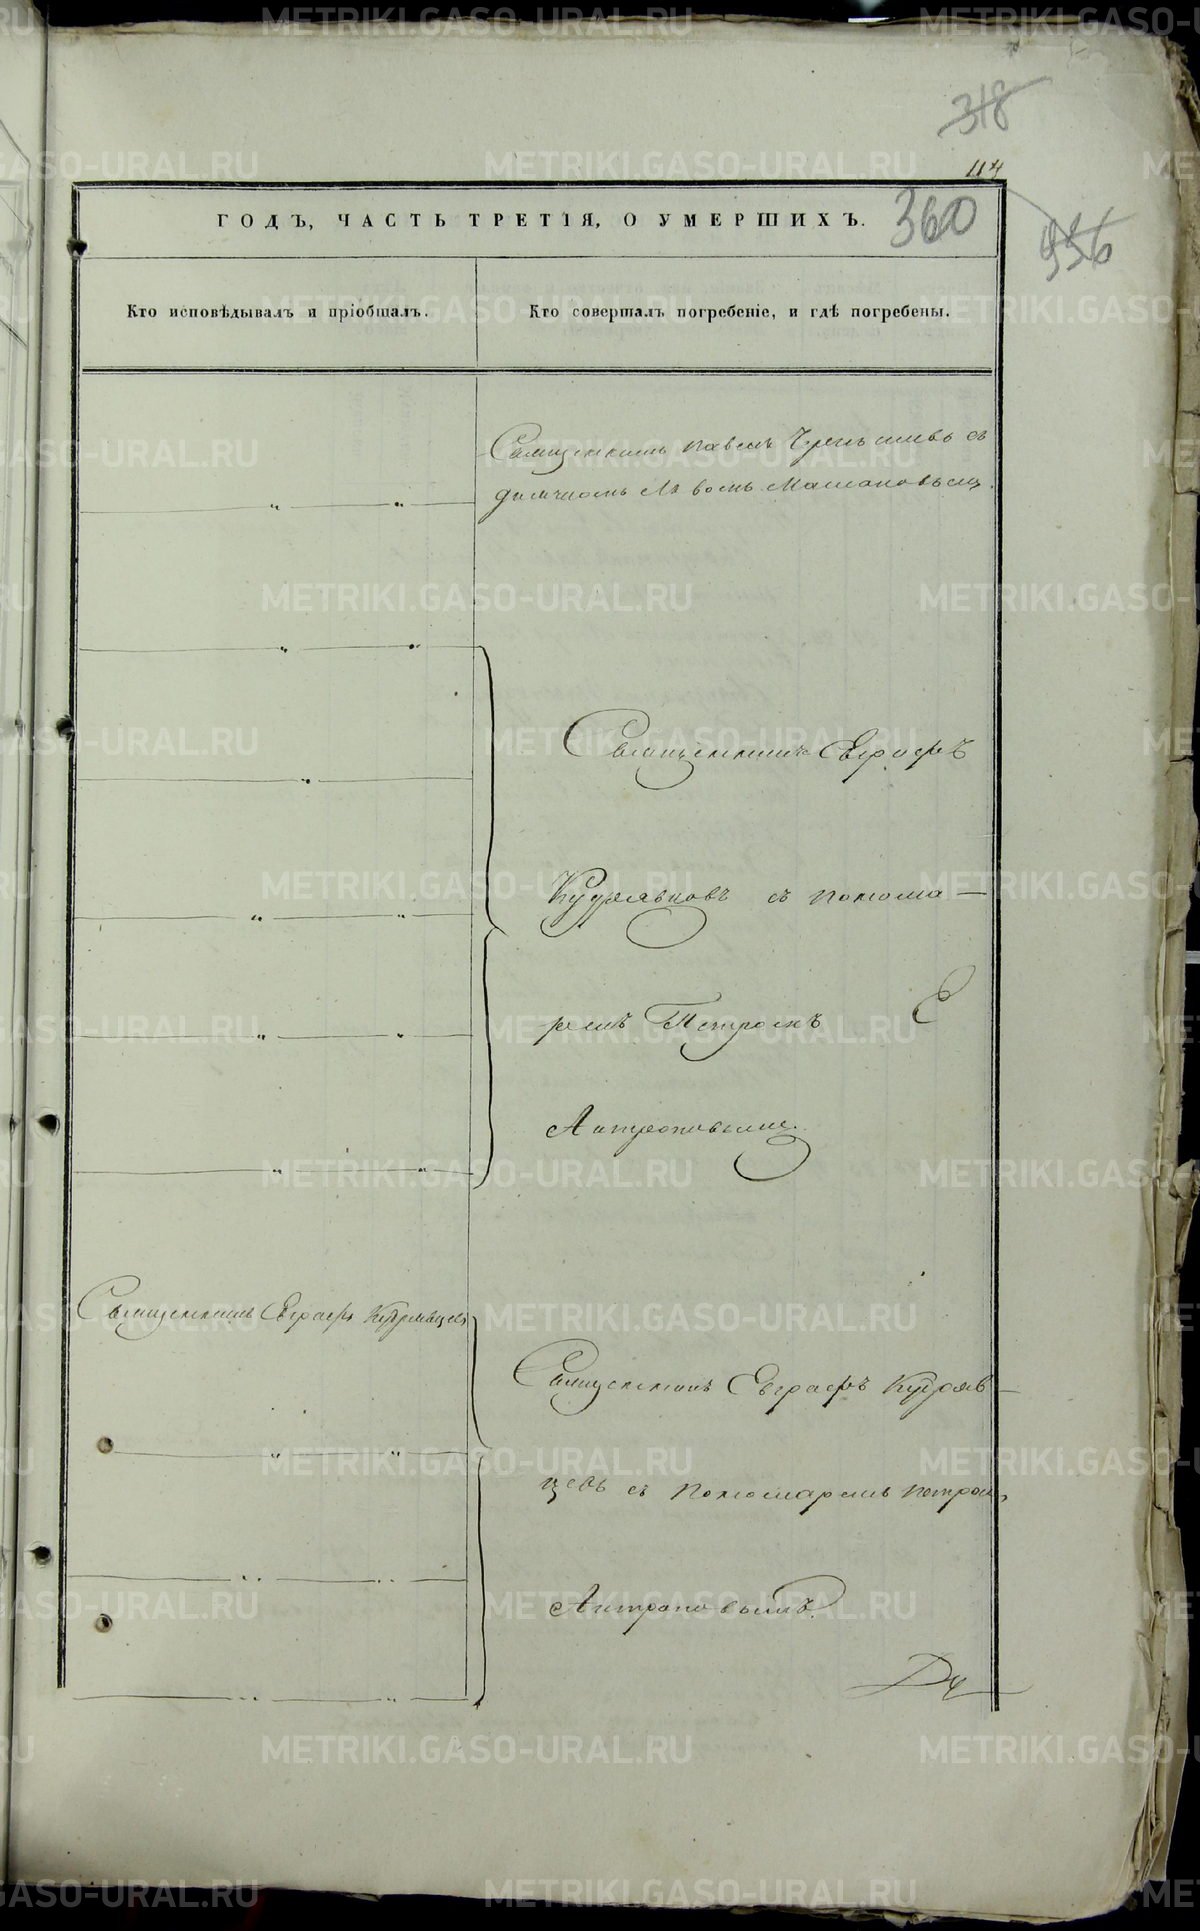 318
114
ГОДЪ, ЧАСТЬ ТРЕТІЯ, О УМЕРШИХЪ.
360
956
Кто исповѣдывалъ и пріобщалъ.
Кто совершалъ погребеніе, и гдѣ погребены.
Священникъ Павелъ съ
Священникъ Евграфъ
Кудрявцовъ съ понома-
ремъ Петромъ
Антроповымъ.
Священникъ Евграфъ Кудрявцевъ
Священникъ Евграфъ Кудряв-
цевъ съ пономаремъ Петром
Антроповымъ.
METRIKI.GASO-URAL.RU